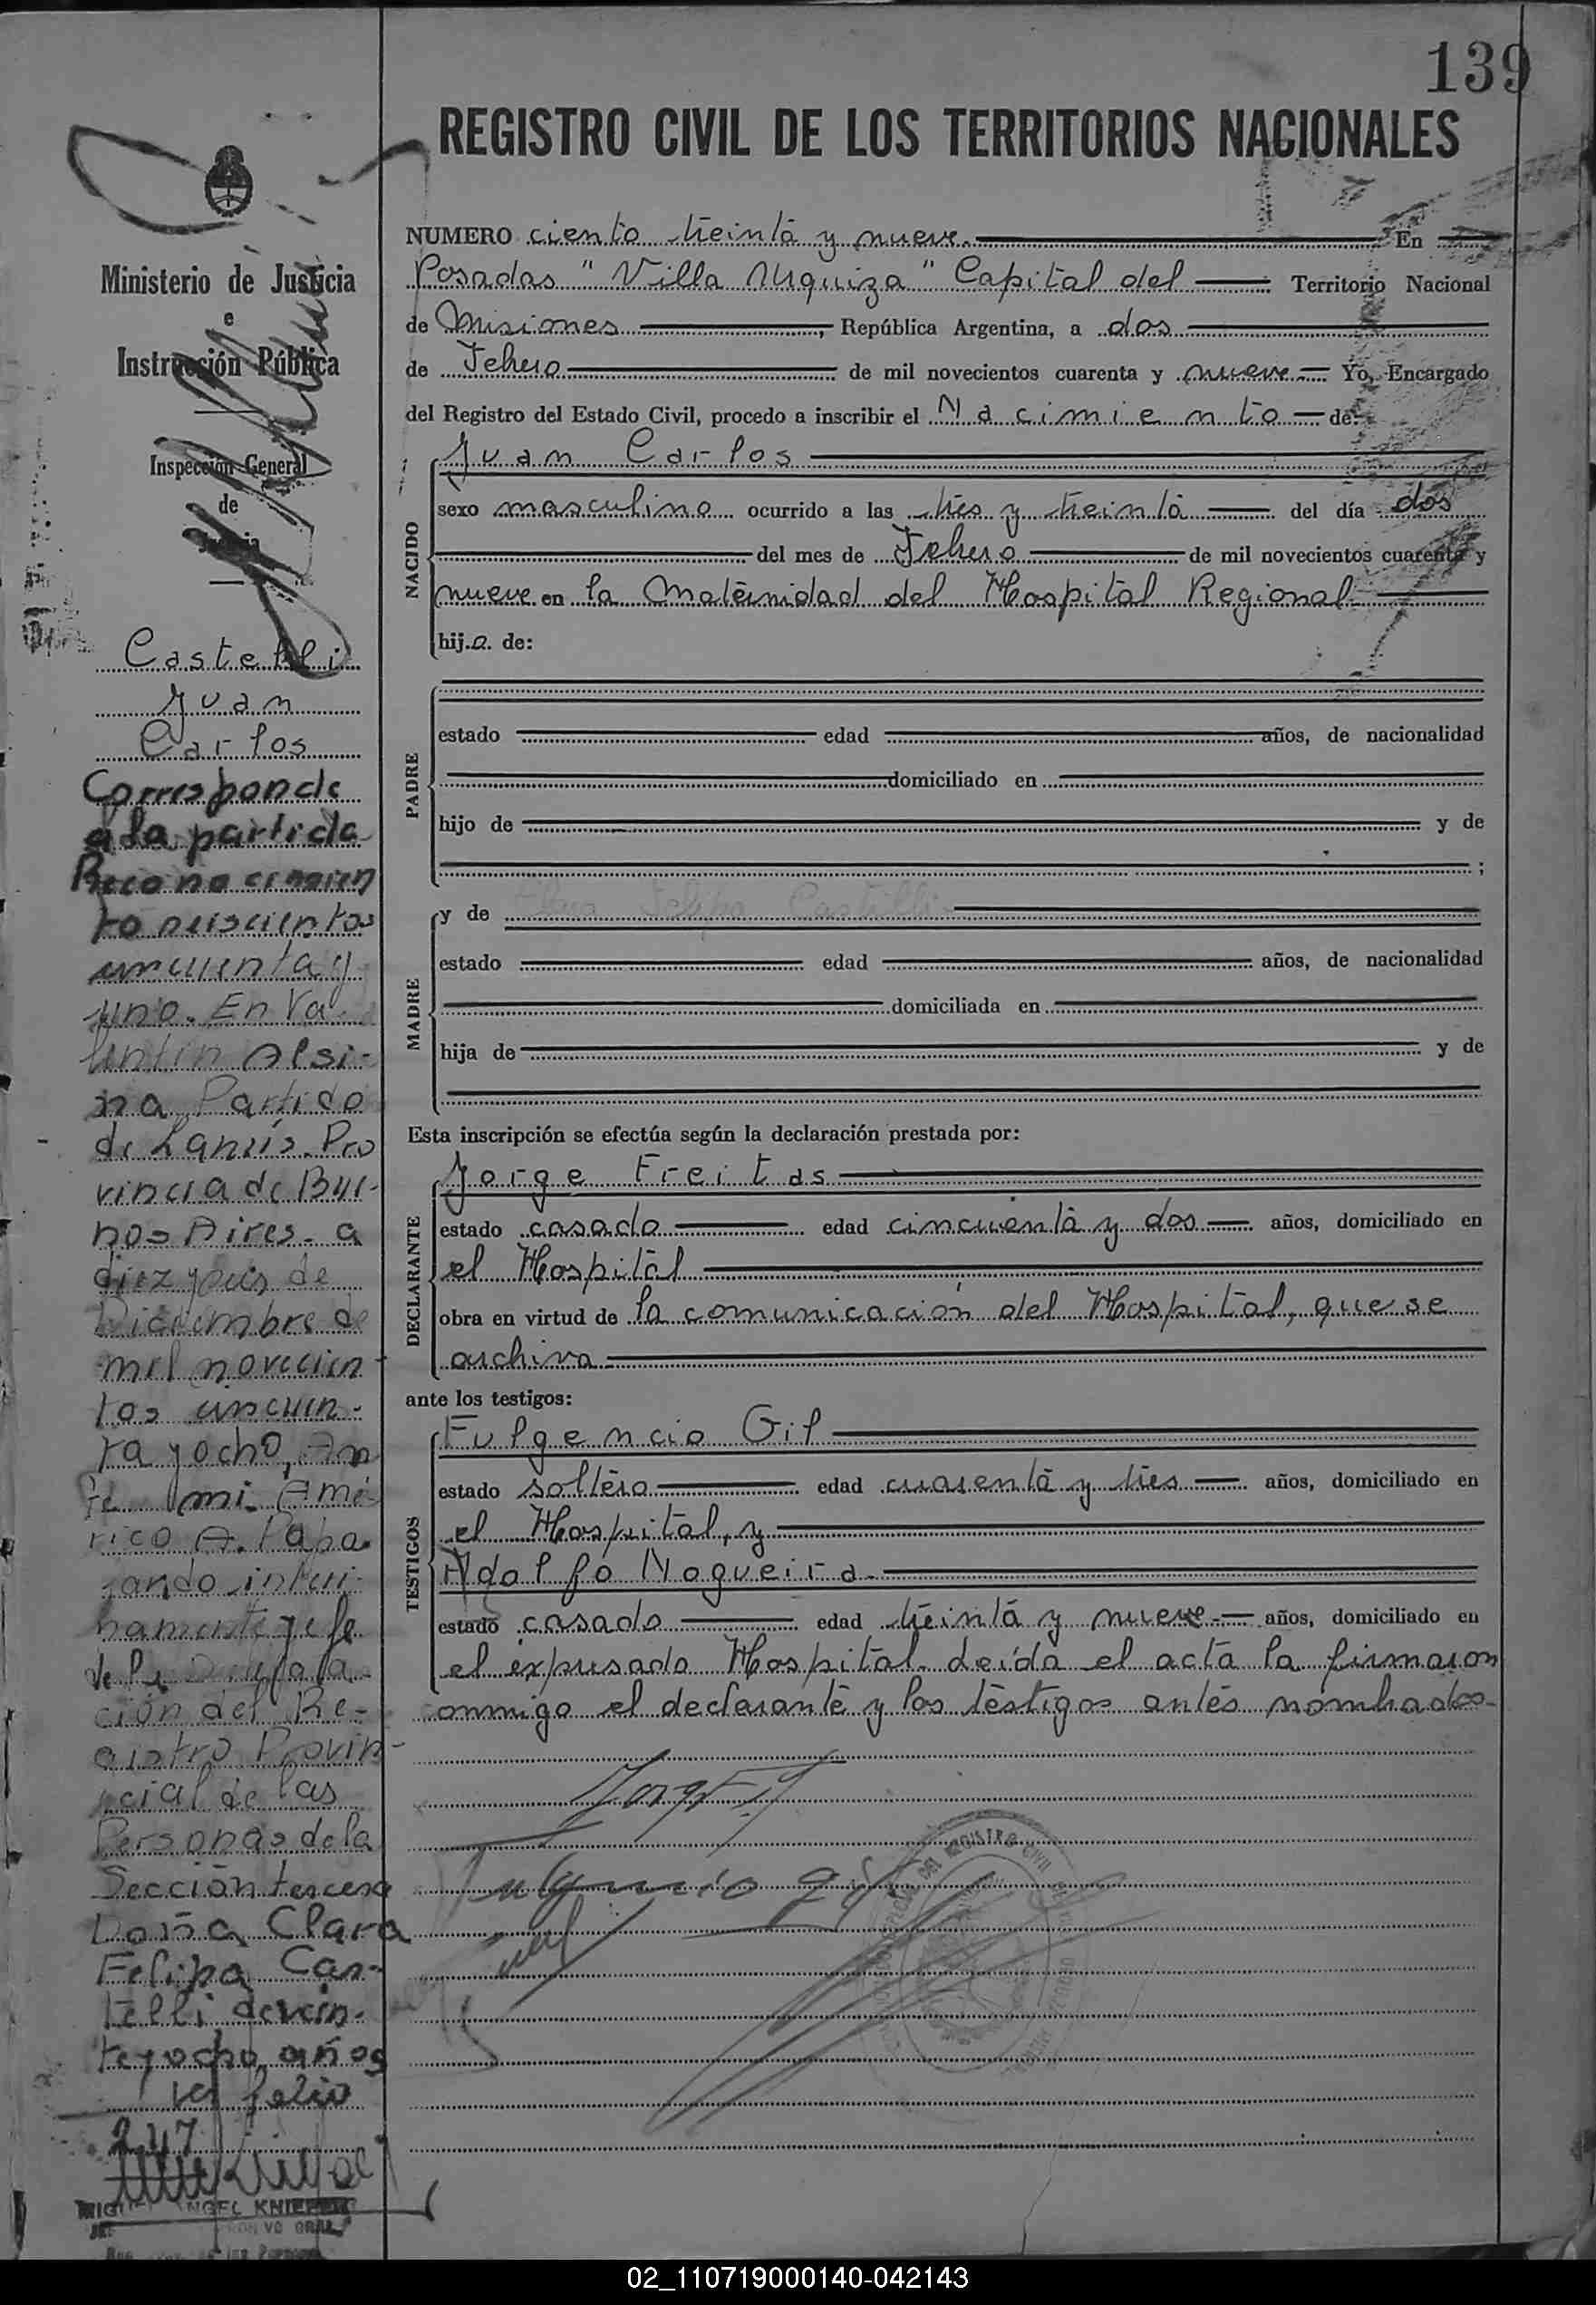 139
REGISTRO CIVIL DE LOS TERRITORIOS NACIONALES
Ministerio de Justicia
e
Instrucción Pública
Inspección General
de
Justicia
Castelli
Juan
Carlos
Corresponde
a la partida
Reconocimien
to seiscientos
cincuenta y
uno. En Va
lentin Alsi-
na Partido
de Lanús. Pro
vincia de Bue-
nos Aires. a
diez y seis de
Diciembre de
mil novecien-
tos cincuen-
ta y ocho, An
te mi Amé
rico A. Papa
rando interi
namente jefe
de la
ción del Re-
gistro Provin-
cial de las
Personas de la
Sección tercera
Doña Clara
Felipa Cas-
telli de vein-
te y ocho años
folio
247
MIGUEL ANGEL
NUMERO ciento treinta y nueve. En
Posadas "Villa Urquiza" Capital del Territorio Nacional
de Misiones, República Argentina, a dos
de Febrero de mil novecientos cuarenta y nueve Yo, Encargado
del Registro del Estado Civil, procedo a inscribir el Nacimiento de:
NACIDO
Juan Carlos
sexo masculino ocurrido a las tres y treinta del día dos
del mes de Febrero de mil novecientos cuarenta y
nueve en la Maternidad del Hospital Regional
hij.o. de:
PADRE
estado edad años, de nacionalidad
domiciliado en
hijo de y de
;
MADRE
y de Clara Felipa Castelli
estado edad años, de nacionalidad
domiciliada en
hija de y de
Esta inscripción se efectúa según la declaración prestada por:
DECLARANTE
Jorge Freitas
estado casado edad cincuenta y dos años, domiciliado en
el Hospital
obra en virtud de la comunicación del Hospital, que se
archiva
ante los testigos:
TESTIGOS
Fulgencio Gil
estado soltero edad cuarenta y tres años, domiciliado en
el Hospital, y
Adolfo Nogueira
estado casado edad treinta y nueve años, domiciliado en
el expresado Hospital. Leída el acta la firmaron
conmigo el declarante y los testigos antes nombrados
Fulgencio Gil
DEL REGISTRO CIVIL
02_110719000140-042143